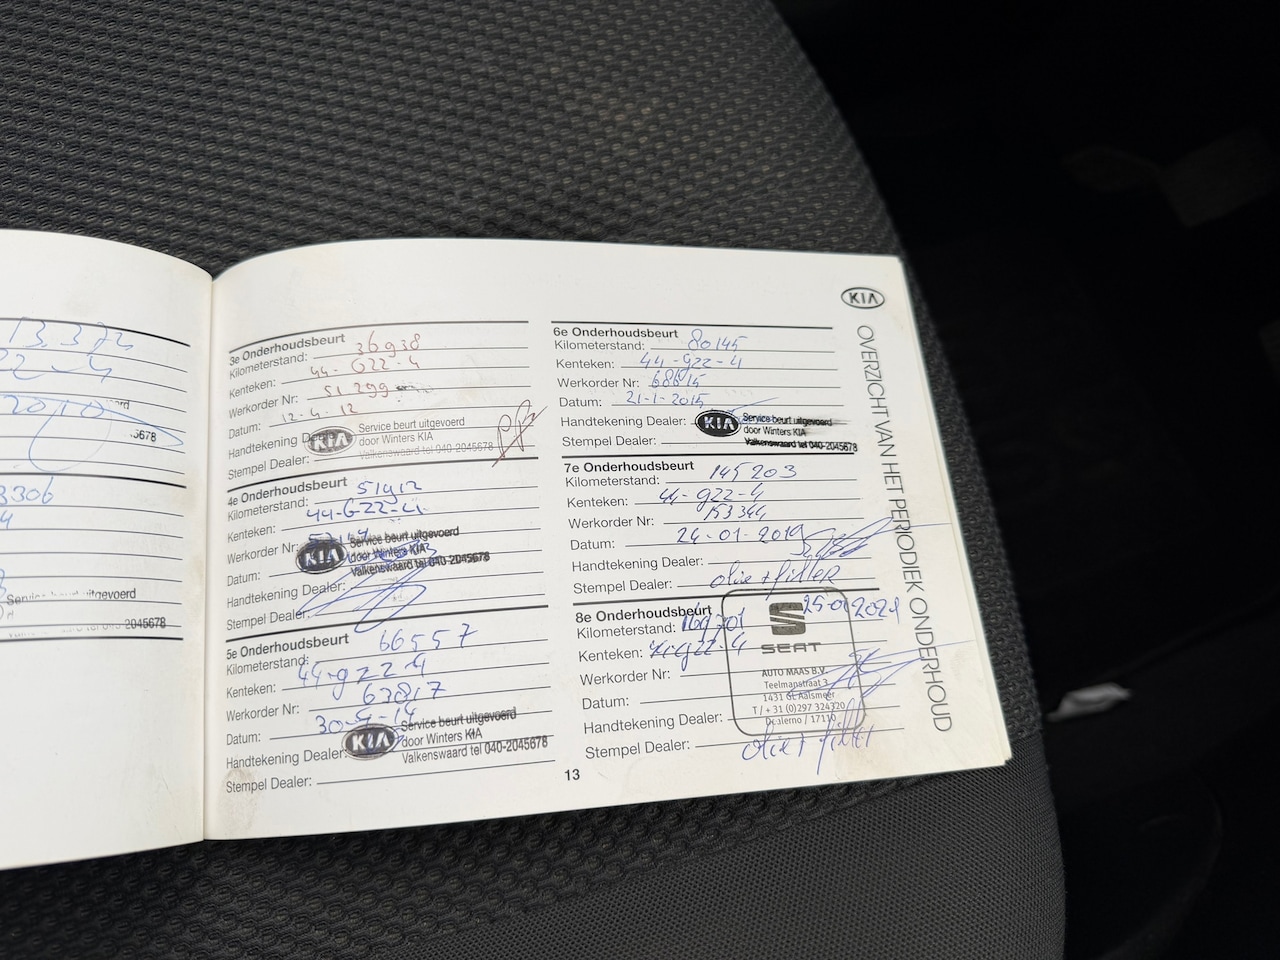 13.372
5678
3306
Service beurt uitgevoerd
040-2045678
3e Onderhoudsbeurt
Kilometerstand: 36938
Kenteken: 44-G22-4
Werkorder Nr: 51299
Datum: 12-4-12
Handtekening Dealer:
Stempel Dealer:
KIA
Service beurt uitgevoerd
door Winters KIA
Valkenswaard tel 040-2045678
4e Onderhoudsbeurt
Kilometerstand: 51912
Kenteken: 44-G22-4
Werkorder Nr:
Datum:
Handtekening Dealer:
Stempel Dealer:
KIA
Service beurt uitgevoerd
door Winters KIA
Valkenswaard tel 040-2045678
5e Onderhoudsbeurt
Kilometerstand: 66557
Kenteken: 44-g22-4
Werkorder Nr: 63817
Datum:
Handtekening Dealer:
Stempel Dealer:
KIA
Service beurt uitgevoerd
door Winters KIA
Valkenswaard tel 040-2045678
6e Onderhoudsbeurt
Kilometerstand: 80145
Kenteken: 44-g22-4
Werkorder Nr: 68615
Datum: 21-1-2015
Handtekening Dealer:
Stempel Dealer:
KIA
Service beurt uitgevoerd
door Winters KIA
Valkenswaard tel 040-2045678
7e Onderhoudsbeurt
Kilometerstand: 145203
Kenteken: 44-g22-4
Werkorder Nr: 153344
Datum: 24-01-2019
Handtekening Dealer:
Stempel Dealer: olie + filter
8e Onderhoudsbeurt
Kilometerstand:
Kenteken:
Werkorder Nr:
Datum:
Handtekening Dealer:
Stempel Dealer: olie + filter
SEAT
AUTO MAAS B.V.
Teelmanstraat 3
1431 GL Aalsmeer
T / + 31 (0)297 324320
Dealerno / 17110
13
KIA
OVERZICHT VAN HET PERIODIEK ONDERHOUD